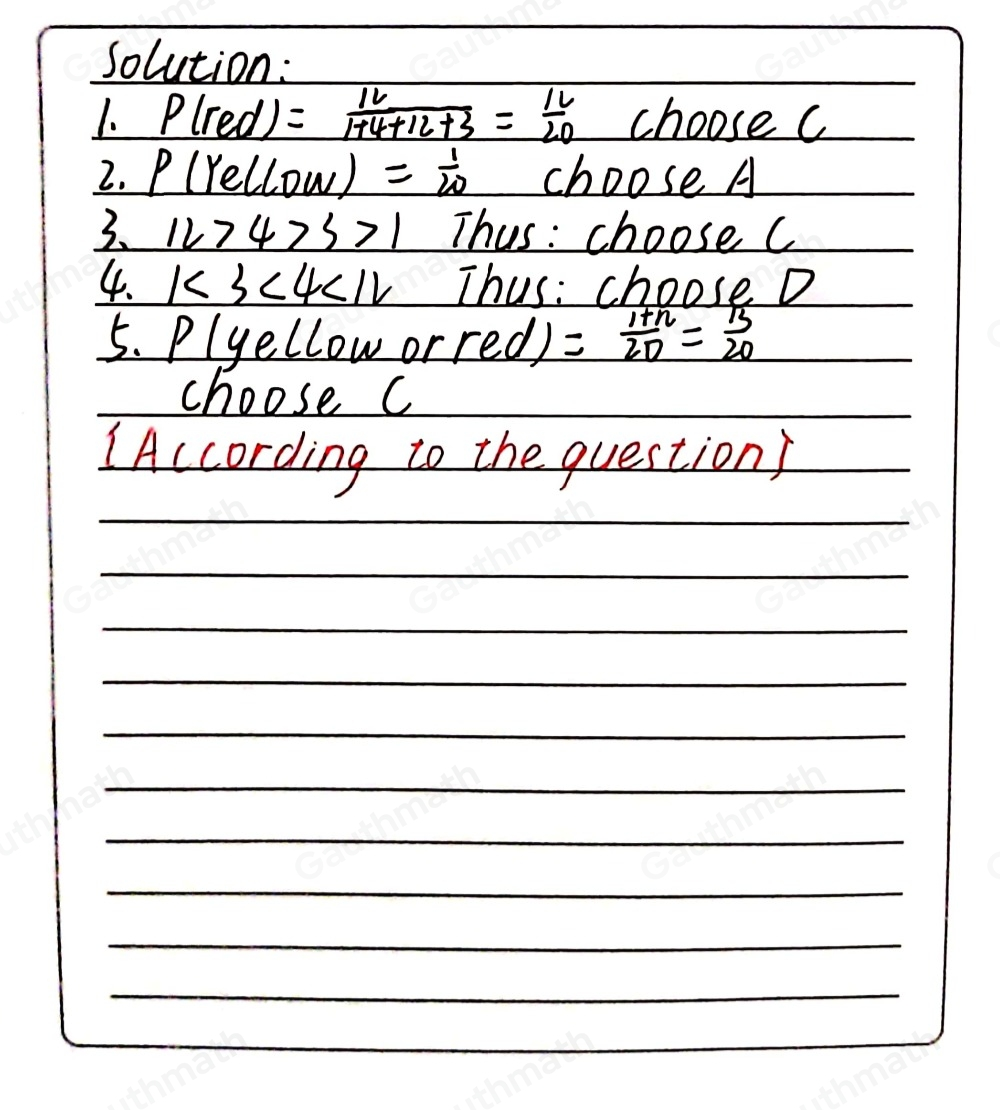 Solution:
1. P(red) = 12/(1+4+12+3) = 12/20 choose C
2. P(Yellow) = 1/20 choose A
3. 12>4>3>1 Thus: choose C
4. 1<3<4<12 Thus: choose D
5. P(yellow or red) = (1+12)/20 = 13/20
choose C
{According to the question}